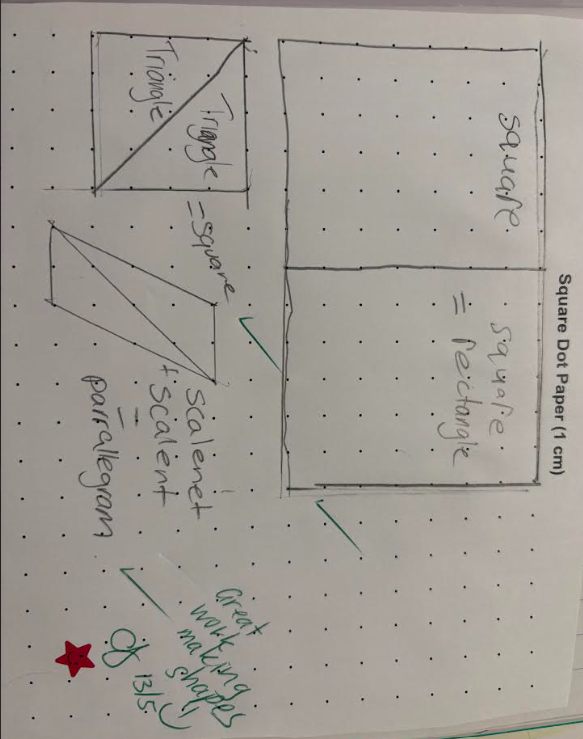 Square Dot Paper (1 cm)
square.
square.
= rectangle
Triangle
Triangle
= square
scalenet
+ scalent
=
parrallegram
Great
work
making
shapes
13/5